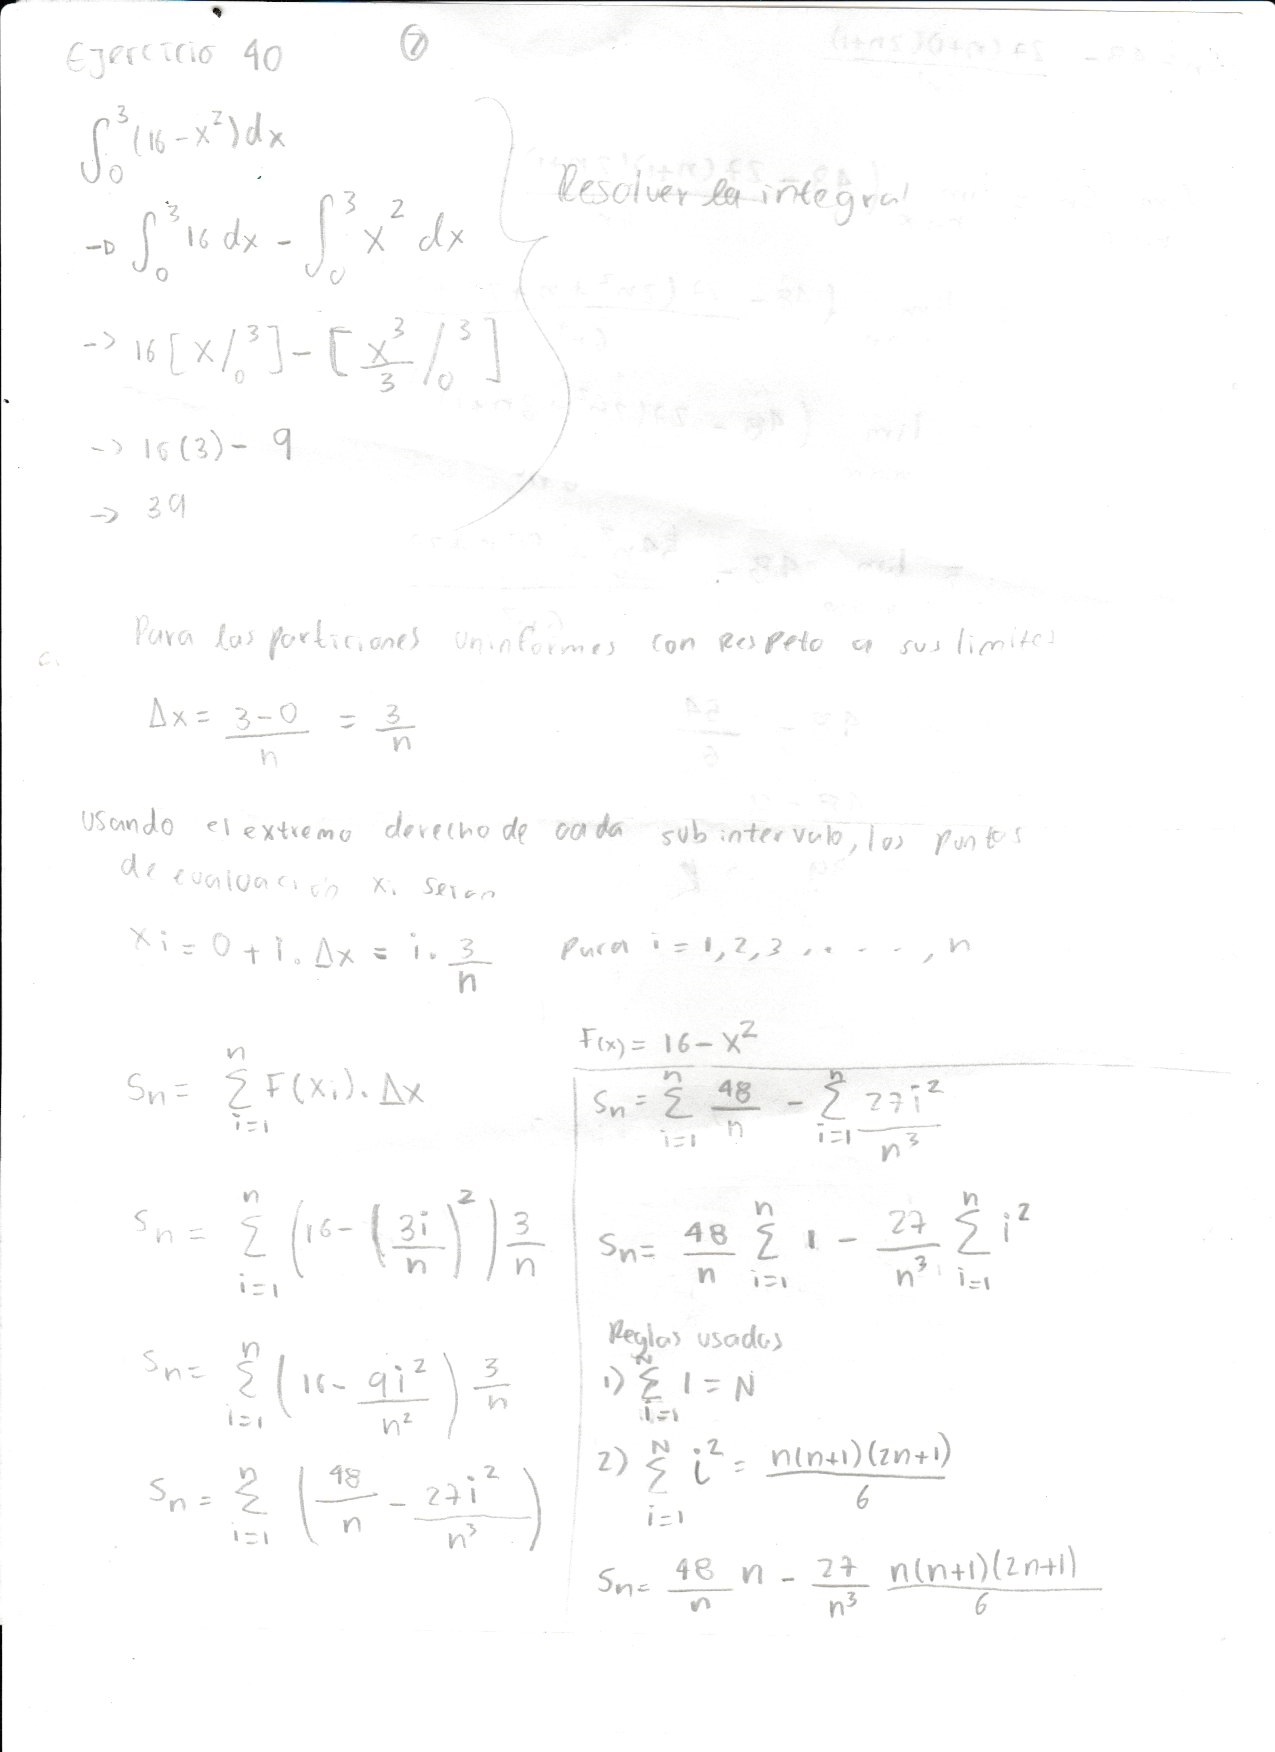 Ejercicio 40
7
∫₀³(16-x²)dx
→ ∫₀³ 16 dx - ∫₀³ x² dx
Resolver la integral
-> 16 [x/₀³] - [x³/3 /₀³]
-> 16(3) - 9
-> 39
Para las particiones uninformes con Respeto a sus limites
Δx = (3-0)/n = 3/n
Usando el extremo derecho de cada subintervalo, los puntos
de evaluación xi seran
xi = 0 + i. Δx = i. 3/n Para i = 1,2,3 . . . . , n
Sn = Σ_{i=1}^{n} F(xi). Δx
Sn = Σ_{i=1}^{n} (16-(3i/n)²) 3/n
Sn = Σ_{i=1}^{n} (16- 9i²/n²) 3/n
Sn = Σ_{i=1}^{n} (48/n - 27i²/n³)
F(x) = 16-x²
Sn = Σ_{i=1}^{n} 48/n - Σ_{i=1}^{n} 27i²/n³
Sn = 48/n Σ_{i=1}^{n} 1 - 27/n³ Σ_{i=1}^{n} i²
Reglas usadas
1) Σ_{i=1}^{N} 1 = N
2) Σ_{i=1}^{N} i² = n(n+1)(2n+1)/6
Sn = 48/n n - 27/n³ n(n+1)(2n+1)/6